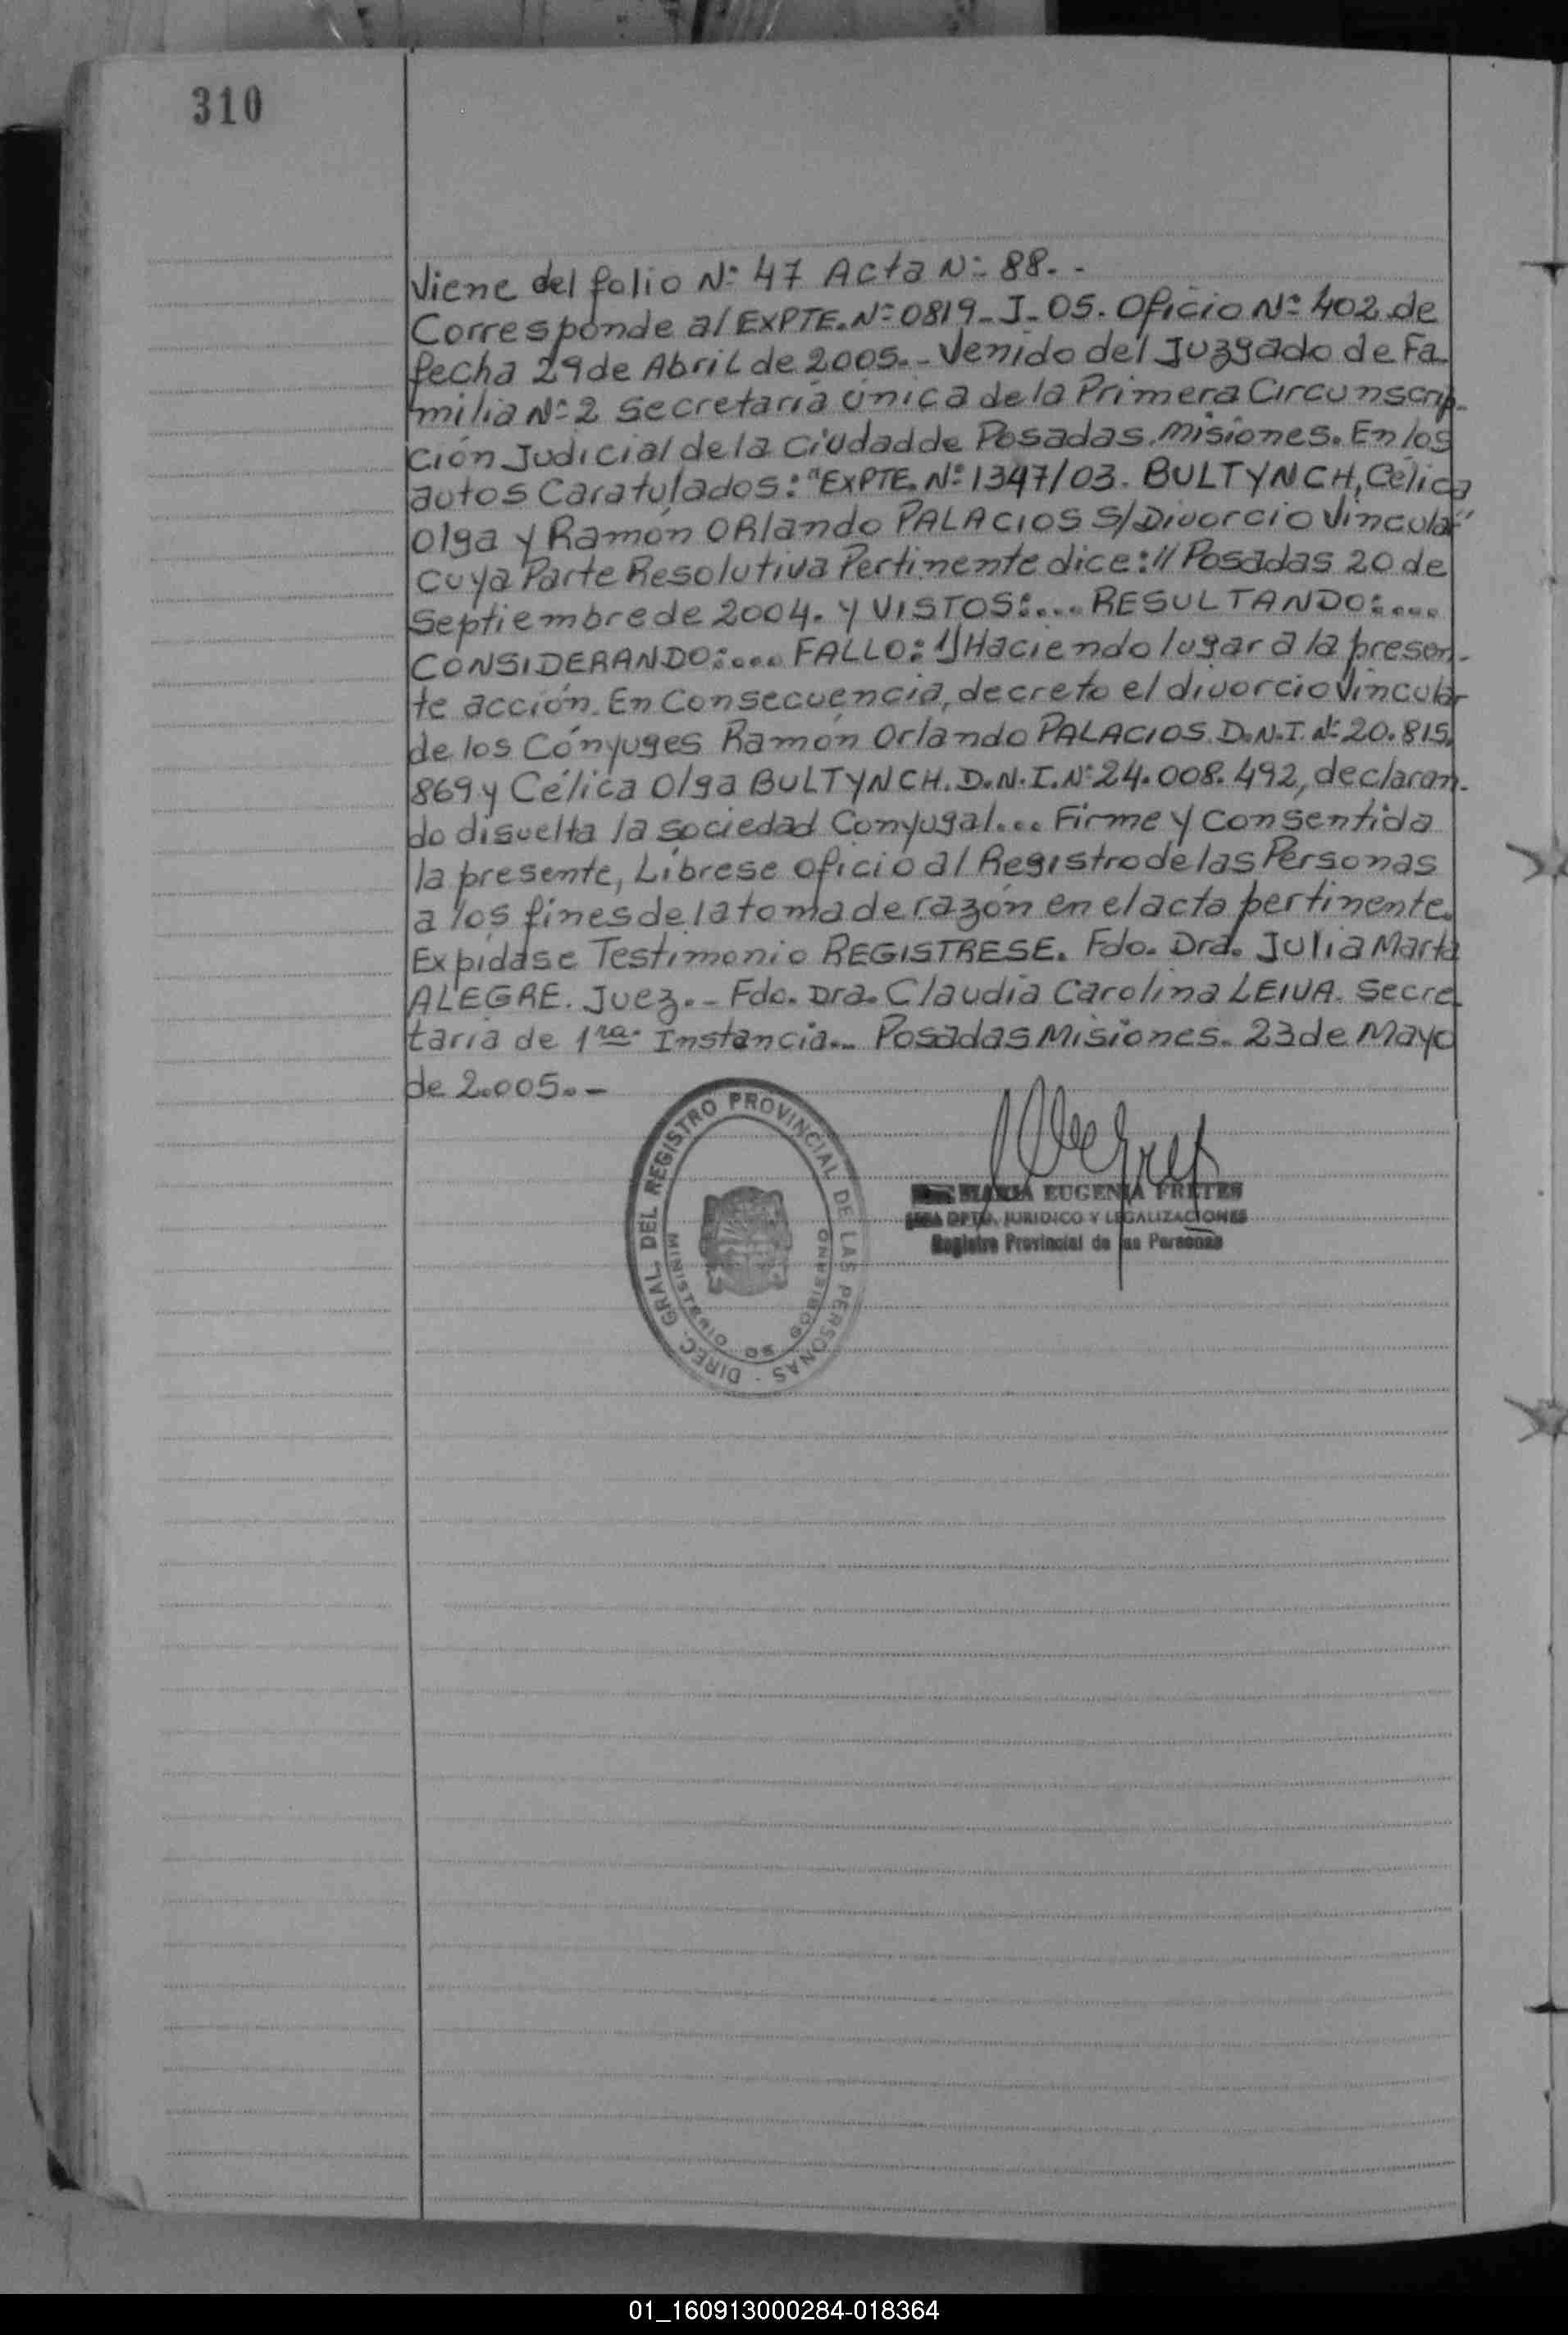 310
Viene del folio Nº 47 Acta Nº 88. -
Corresponde al EXPTE. Nº 0819_J_05. Oficio Nº 402 de
fecha 29 de Abril de 2005.- Venido del Juzgado de Fa-
milia Nº 2 Secretaría única de la Primera Circunscrip-
ción Judicial de la Ciudad de Posadas. Misiones. En los
autos Caratulados: "EXPTE. Nº 1347/03. BULTYNCH, Célica
Olga y Ramón ORlando PALACIOS S/Divorcio Vincular"
cuya Parte Resolutiva Pertinente dice: // Posadas 20 de
Septiembre de 2004. Y VISTOS:.... RESULTANDO:....
CONSIDERANDO:.... FALLO: 1) Haciendo lugar a la presen-
te acción. En Consecuencia, decreto el divorcio Vincular
de los Cónyuges Ramón Orlando PALACIOS. D.N.I. Nº 20.815.
869 y Célica Olga BULTYNCH. D.N.I. Nº 24.008.492, declaran-
do disuelta la sociedad Conyugal... Firme y Consentida
la presente, Líbrese oficio al Registro de las Personas
a los fines de la toma de razón en el acta pertinente.
Expídase Testimonio REGISTRESE. Fdo. Dra. Julia Marta
ALEGRE. Juez.- Fdo. Dra. Claudia Carolina LEIVA. Secre-
taria de 1ra. Instancia.- Posadas Misiones. 23 de Mayo
de 2.005.-
DIREC. GRAL. DEL REGISTRO PROVINCIAL DE LAS PERSONAS -
MINISTERIO DE GOBIERNO
MARIA EUGENIA FRETES
DPTO. JURIDICO Y LEGALIZACIONES
Registro Provincial de las Personas
01_160913000284-018364